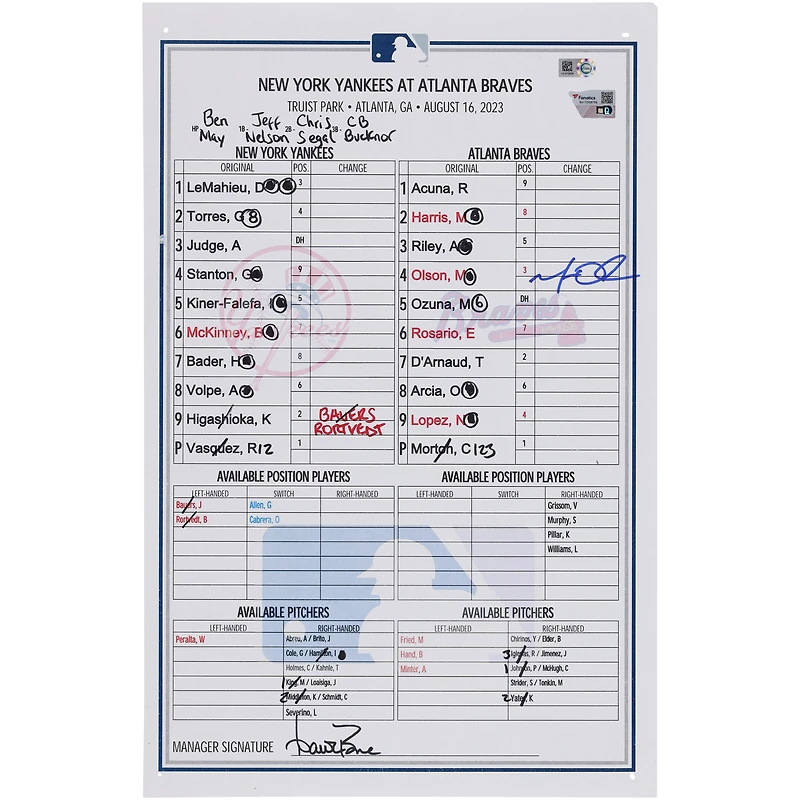 NEW YORK YANKEES AT ATLANTA BRAVES
TRUIST PARK • ATLANTA, GA • AUGUST 16, 2023
Fanatics
Ben Jeff Chris CB
HP 1B- 2B- 3B-
May Nelson Segal Bucknor
NEW YORK YANKEES ATLANTA BRAVES
ORIGINAL POS. CHANGE ORIGINAL POS. CHANGE
1 LeMahieu, D 3 1 Acuna, R 9
2 Torres, G 8 4 2 Harris, M 8
3 Judge, A DH 3 Riley, A 5
4 Stanton, G 9 4 Olson, M 3
5 Kiner-Falefa, 5 5 Ozuna, M 6 DH
6 McKinney, B 7 6 Rosario, E 7
7 Bader, H 8 7 D'Arnaud, T 2
8 Volpe, A 6 8 Arcia, O 6
9 Higashioka, K 2 BAUERS 9 Lopez, N 4
RORTVEDT
P Vasquez, R 12 1 P Morton, C 123 1
AVAILABLE POSITION PLAYERS AVAILABLE POSITION PLAYERS
LEFT-HANDED SWITCH RIGHT-HANDED LEFT-HANDED SWITCH RIGHT-HANDED
Bauers, J Allen, G Grissom, V
Rortvedt, B Cabrera, O Murphy, S
Pillar, K
Williams, L
AVAILABLE PITCHERS AVAILABLE PITCHERS
LEFT-HANDED RIGHT-HANDED LEFT-HANDED RIGHT-HANDED
Peralta, W Abreu, A / Brito, J Fried, M Chirinos, Y / Elder, B
Cole, G / Hamilton, I Hand, B 3 Iglesias, R / Jimenez, J
Holmes, C / Kahnle, T Minter, A 1 Johnson, P / McHugh, C
1 King, M / Loaisiga, J Strider, S / Tonkin, M
2 Middleton, K / Schmidt, C 2 Yates, K
Severino, L
MANAGER SIGNATURE